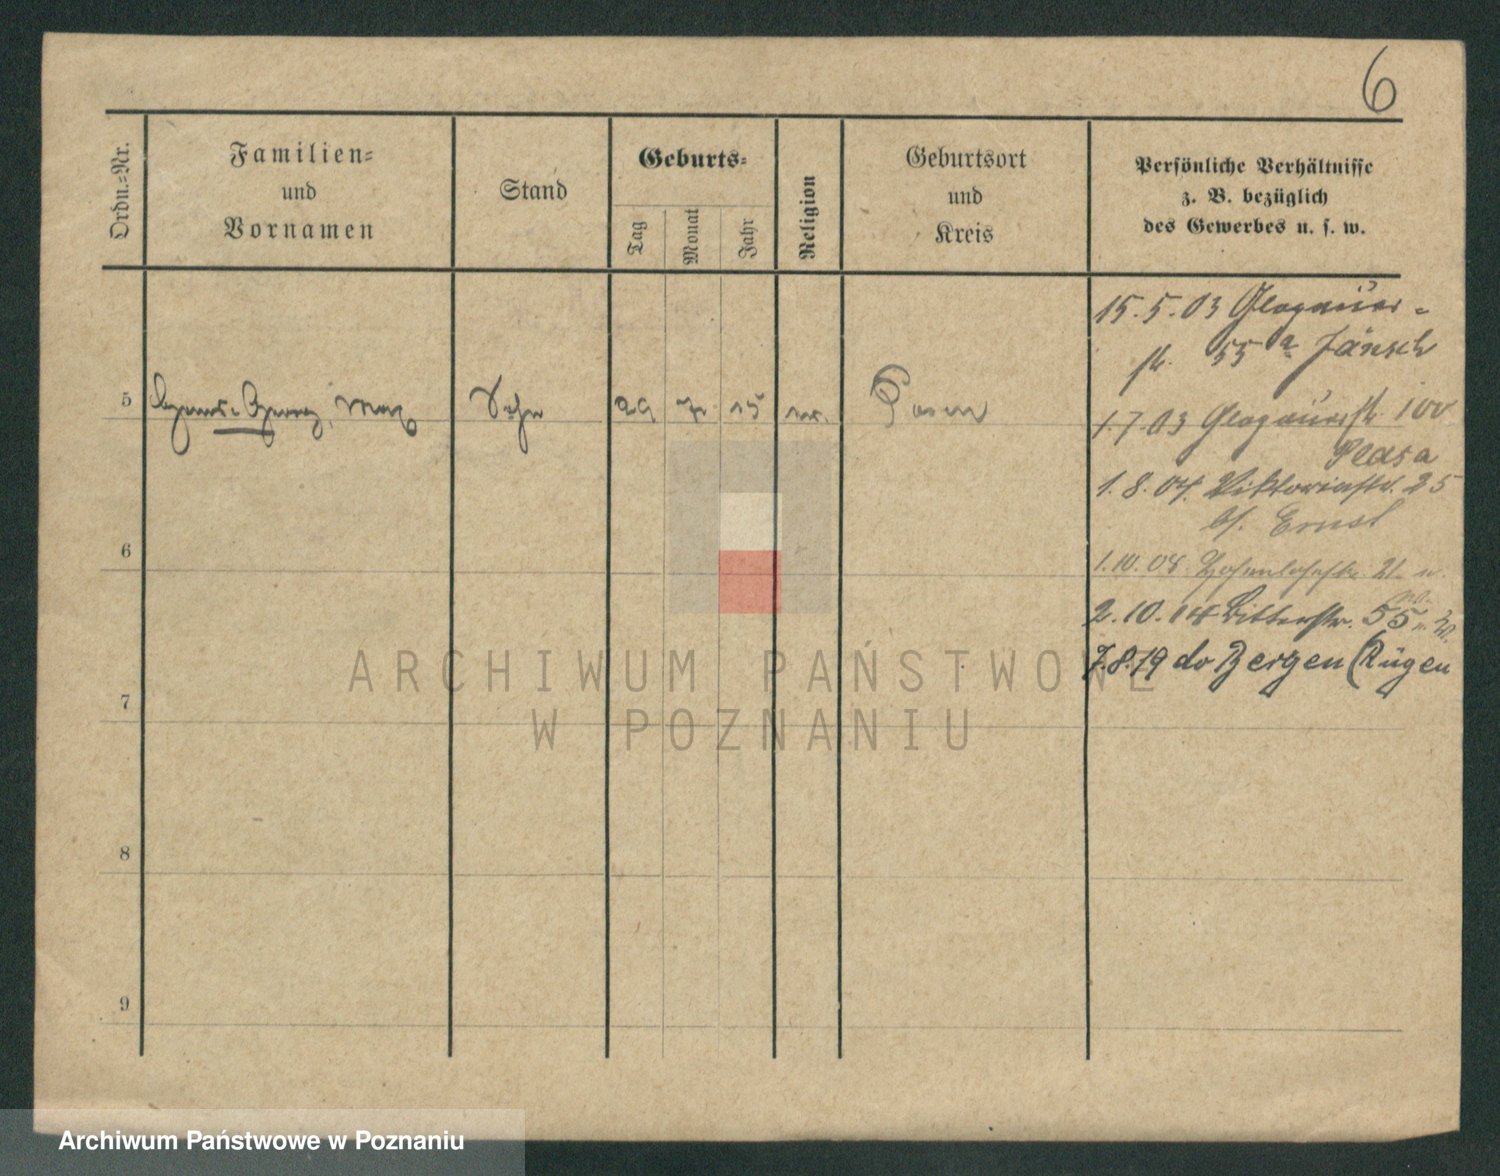 6
Ordn.-Nr.
Familien-
und
Vornamen
Stand
Geburts-
Tag
Monat
Jahr
Religion
Geburtsort
und
Kreis
Persönliche Verhältnisse
z. B. bezüglich
des Gewerbes u. s. w.
15.5.03 Glogauer-
str. 55a Jänsch
5 Georg, Max Sohn 29 7 15 Posen
1.7.03 Glogauerstr. 100
1.8.04. Viktoriastr. 25
b/. Ernst
6
1.10.08 Hohenlohestr.
2.10.14 Ritterstr. 55
7.8.19 do Bergen (Rügen
7
8
9
ARCHIWUM PAŃSTWOWE
W POZNANIU
Archiwum Państwowe w Poznaniu